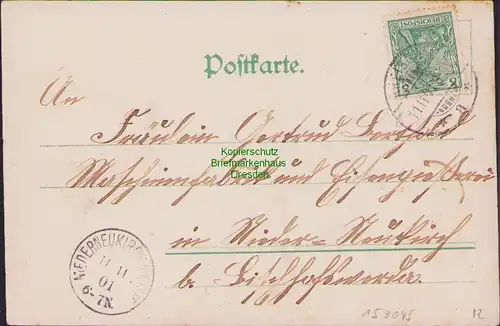 REICHSPOST
5
Postkarte.
An
Fräulein Gertrud
Maschinenfabrik und Eisengießerei
in Nieder-Neukirch
b. Bischofswerda.
Kopierschutz
Briefmarkenhaus
Dresden
NIEDERNEUKIRCH
11 11
01
6-7N.
153045
12